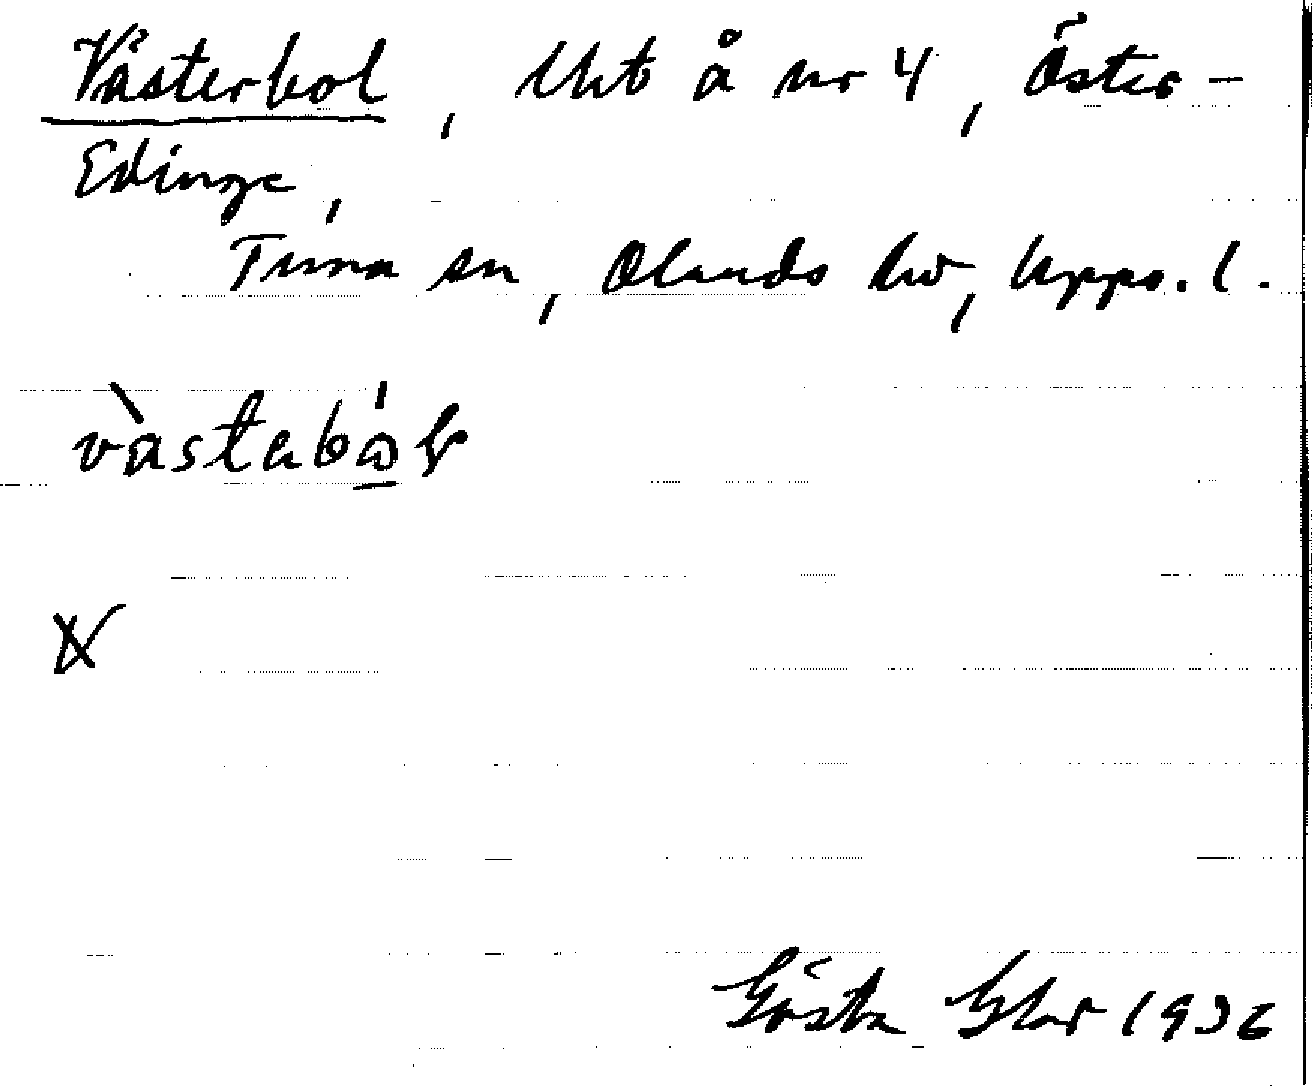 Västerbol, Uht å nr 4, Öster-
Edinge,
Tuna sn, Olands hd, Upps. l.
vàstabób
Gösta 1936